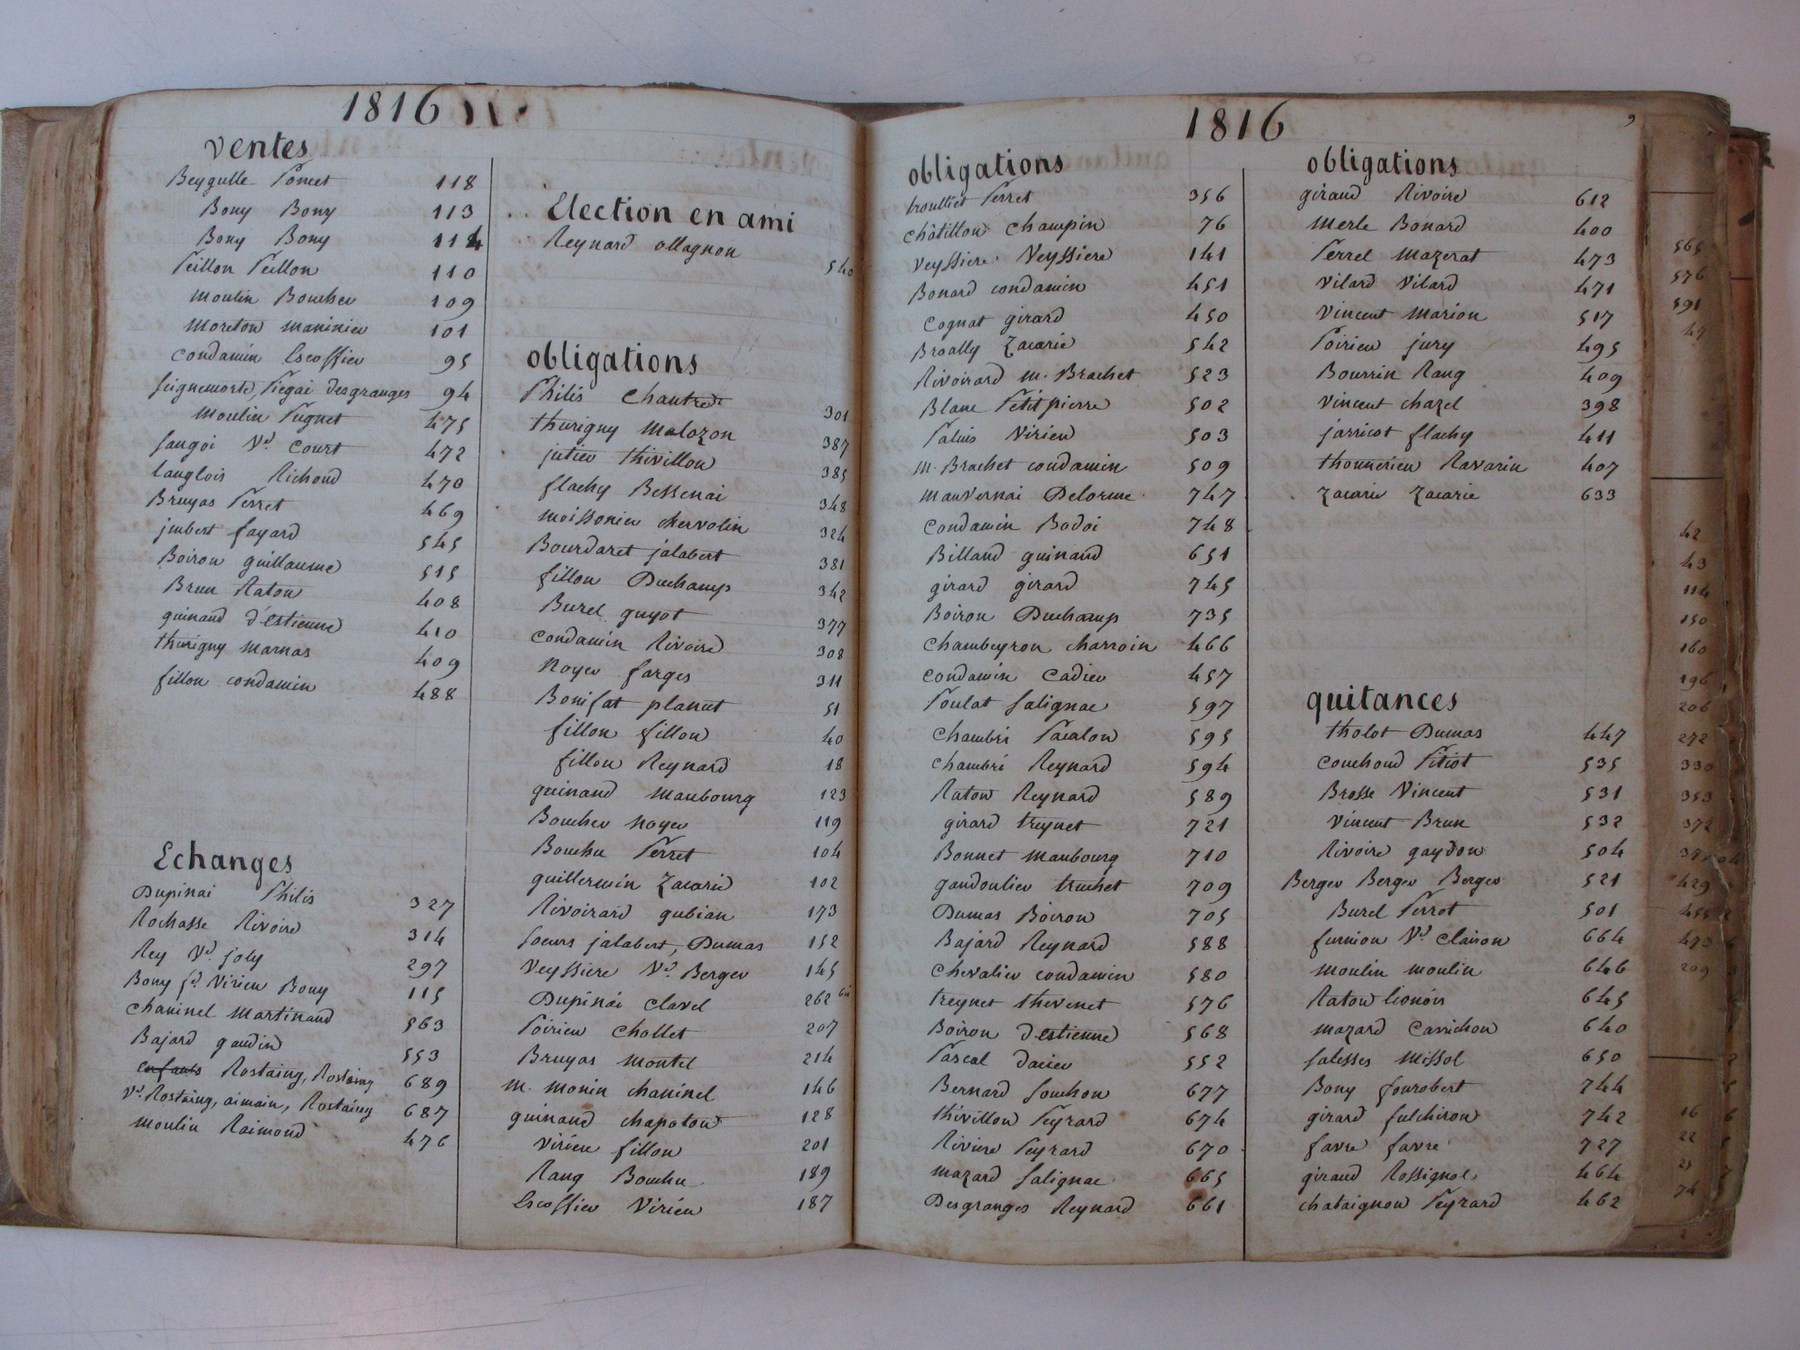 1816
ventes
Beygulle Poncet 118
Bony Bony 113
Bony Bony 114
Peillon Peillon 110
moulin Boucher 109
moreton maninier 101
condamin Escoffier 95
seignemorte, Piegai Desgranges 94
moulin Pugnet 475
jangoi Ve court 472
langlois Richoud 470
Bruyas Perret 469
jmbert fayard 545
Boiron guillaume 515
Brun Raton 408
guinand d'estienne 410
thurigny marnas 409
fillon condamin 488
Echanges
Dupinai Philis 327
Rochasse Rivoire 314
Rey Ve joly 297
Bony fe Virieu Bony 115
chaninel martinaud 563
Bajard gaudin 553
enfants Rostaing, Rostaing 689
Ve Rostaing, aimain, Rostaing 687
moulin Raimond 476
Election en ami
Reynard ollagnon 540
obligations
Philis Chautrede 301
thurigny malozon 387
jutieu thivillon 385
flachy Bessenai 348
moissonier chervolin 324
Bourdaret jalabert 381
fillon Duchamp 342
Burel guyot 377
condamin Rivoire 308
Noyer farges 311
Bonifat planut 51
fillon fillon 40
fillon Reynard 18
guinand maubourg 123
Boucher noyer 119
Bouchu Perret 104
guillermin Zacarie 102
Rivoirard gubian 173
soeurs jalabert, Dumas 152
Veyssiere Ve Berger 145
Dupinai clavel 262 bis
Poirieu chollet 207
Bruyas montel 214
m. monin chaninel 146
guinand chapoton 128
Virieu fillon 201
Rang Bouchu 189
Escoffier Virieu 187
1816
obligations
trouttet Perret 356
châtillon champin 76
Veyssiere Veyssiere 141
Bonard condamin 451
cognat girard 450
Broally Zacarie 542
Rivoirard m. Brachet 523
Blanc Petitpierre 502
Paluis Virieu 503
m. Brachet condamin 509
mauvernai Delorme 747
condamin Badoi 748
Billand guinand 651
girard girard 745
Boiron Duchamp 735
chambeyron charroin 466
condamin cadier 457
Poulat salignac 597
chambri Pacalon 595
chambri Reynard 594
Raton Reynard 589
girard treynet 721
Bonnet maubourg 710
gandoulieu truchet 709
Dumas Boiron 705
Bajard Reynard 588
chevalier condamin 580
treynet thevenet 576
Boiron d'estienne 568
Pascal dacier 552
Bernard souchon 677
thivillon Peyrard 674
Rivière Peyrard 670
mazard salignac 665
Desgranges Reynard 661
9
obligations
giraud Rivoire 612
merle Bonard 400
Perrel mazerat 473
vilard vilard 471
vincent marion 517
Poirieu jury 495
Bourrin Rang 409
vincent chazel 398
jarricot flachy 411
thonnerieu Ravarin 407
Zacarie Zacarie 633
quitances
tholot Dumas 447
couchoud Pitiot 535
Brosse Vincent 531
vincent Brun 532
Rivoire gaydon 504
Berger Berger Berger 521
Burel Perrot 501
furnion Ve clairon 664
moulin moulin 646
Raton lionnois 645
mazard carrichon 640
salesses missol 650
Bony fourobert 744
girard fulchiron 742
favre favre 727
giraud Rossignol 464
chataignon Peyrard 462
565
576
591
49
42
43
114
150
160
196
206
272
330
353
372
429
455
473
209
16
22
25
74